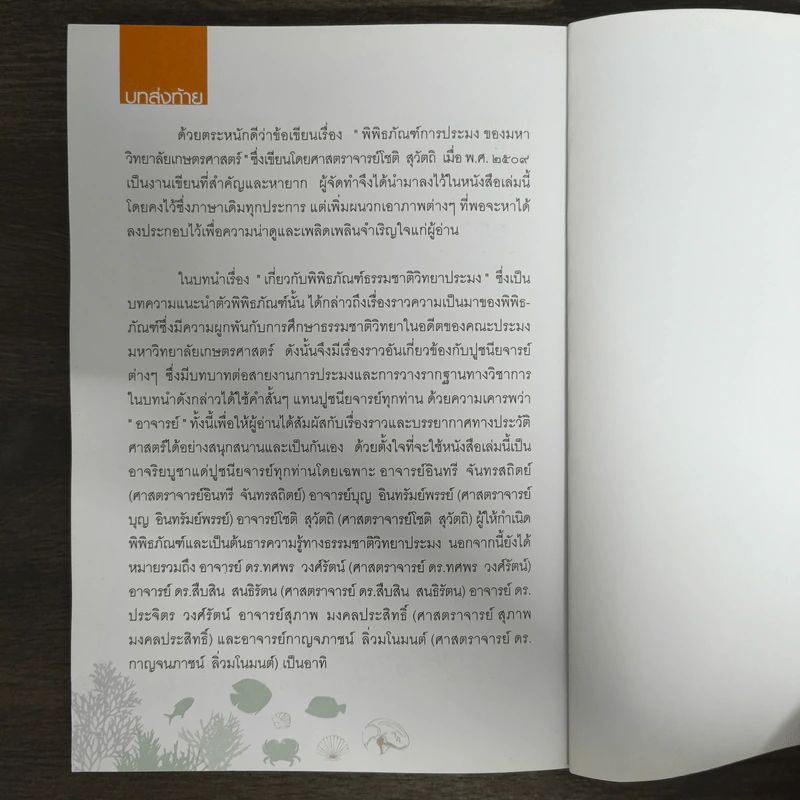 บทส่งท้าย
ด้วยตระหนักดีว่าข้อเขียนเรื่อง " พิพิธภัณฑ์การประมง ของมหา
วิทยาลัยเกษตรศาสตร์ " ซึ่งเขียนโดยศาสตราจารย์โชติ สุวัตถิ เมื่อ พ.ศ. ๒๕๐๙
เป็นงานเขียนที่สำคัญและหายาก ผู้จัดทำจึงได้นำมาลงไว้ในหนังสือเล่มนี้
โดยคงไว้ซึ่งภาษาเดิมทุกประการ แต่เพิ่มผนวกเอาภาพต่างๆ ที่พอจะหาได้
ลงประกอบไว้เพื่อความน่าดูและเพลิดเพลินจำเริญใจแก่ผู้อ่าน
ในบทนำเรื่อง " เกี่ยวกับพิพิธภัณฑ์ธรรมชาติวิทยาประมง " ซึ่งเป็น
บทความแนะนำตัวพิพิธภัณฑ์นั้น ได้กล่าวถึงเรื่องราวความเป็นมาของพิพิธ-
ภัณฑ์ซึ่งมีความผูกพันกับการศึกษาธรรมชาติวิทยาในอดีตของคณะประมง
มหาวิทยาลัยเกษตรศาสตร์ ดังนั้นจึงมีเรื่องราวอันเกี่ยวข้องกับปูชนียจารย์
ต่างๆ ซึ่งมีบทบาทต่อสายงานการประมงและการวางรากฐานทางวิชาการ
ในบทนำดังกล่าวได้ใช้คำสั้นๆ แทนปูชนียจารย์ทุกท่าน ด้วยความเคารพว่า
" อาจารย์ " ทั้งนี้เพื่อให้ผู้อ่านได้สัมผัสกับเรื่องราวและบรรยากาศทางประวัติ
ศาสตร์ได้อย่างสนุกสนานและเป็นกันเอง ด้วยตั้งใจที่จะใช้หนังสือเล่มนี้เป็น
อาจริยบูชาแด่ปูชนียจารย์ทุกท่านโดยเฉพาะ อาจารย์อินทรี จันทรสถิตย์
(ศาสตราจารย์อินทรี จันทรสถิตย์) อาจารย์บุญ อินทรัมย์พรรย์ (ศาสตราจารย์
บุญ อินทรัมย์พรรย์) อาจารย์โชติ สุวัตถิ (ศาสตราจารย์โชติ สุวัตถิ) ผู้ให้กำเนิด
พิพิธภัณฑ์และเป็นต้นธารความรู้ทางธรรมชาติวิทยาประมง นอกจากนี้ยังได้
หมายรวมถึง อาจารย์ ดร.ทศพร วงศ์รัตน์ (ศาสตราจารย์ ดร.ทศพร วงศ์รัตน์)
อาจารย์ ดร.สืบสิน สนธิรัตน (ศาสตราจารย์ ดร.สืบสิน สนธิรัตน) อาจารย์ ดร.
ประจิตร วงศ์รัตน์ อาจารย์สุภาพ มงคลประสิทธิ์ (ศาสตราจารย์ สุภาพ
มงคลประสิทธิ์) และอาจารย์กาญจภาชน์ ลิ่วมโนมนต์ (ศาสตราจารย์ ดร.
กาญจนภาชน์ ลิ่วมโนมนต์) เป็นอาทิ